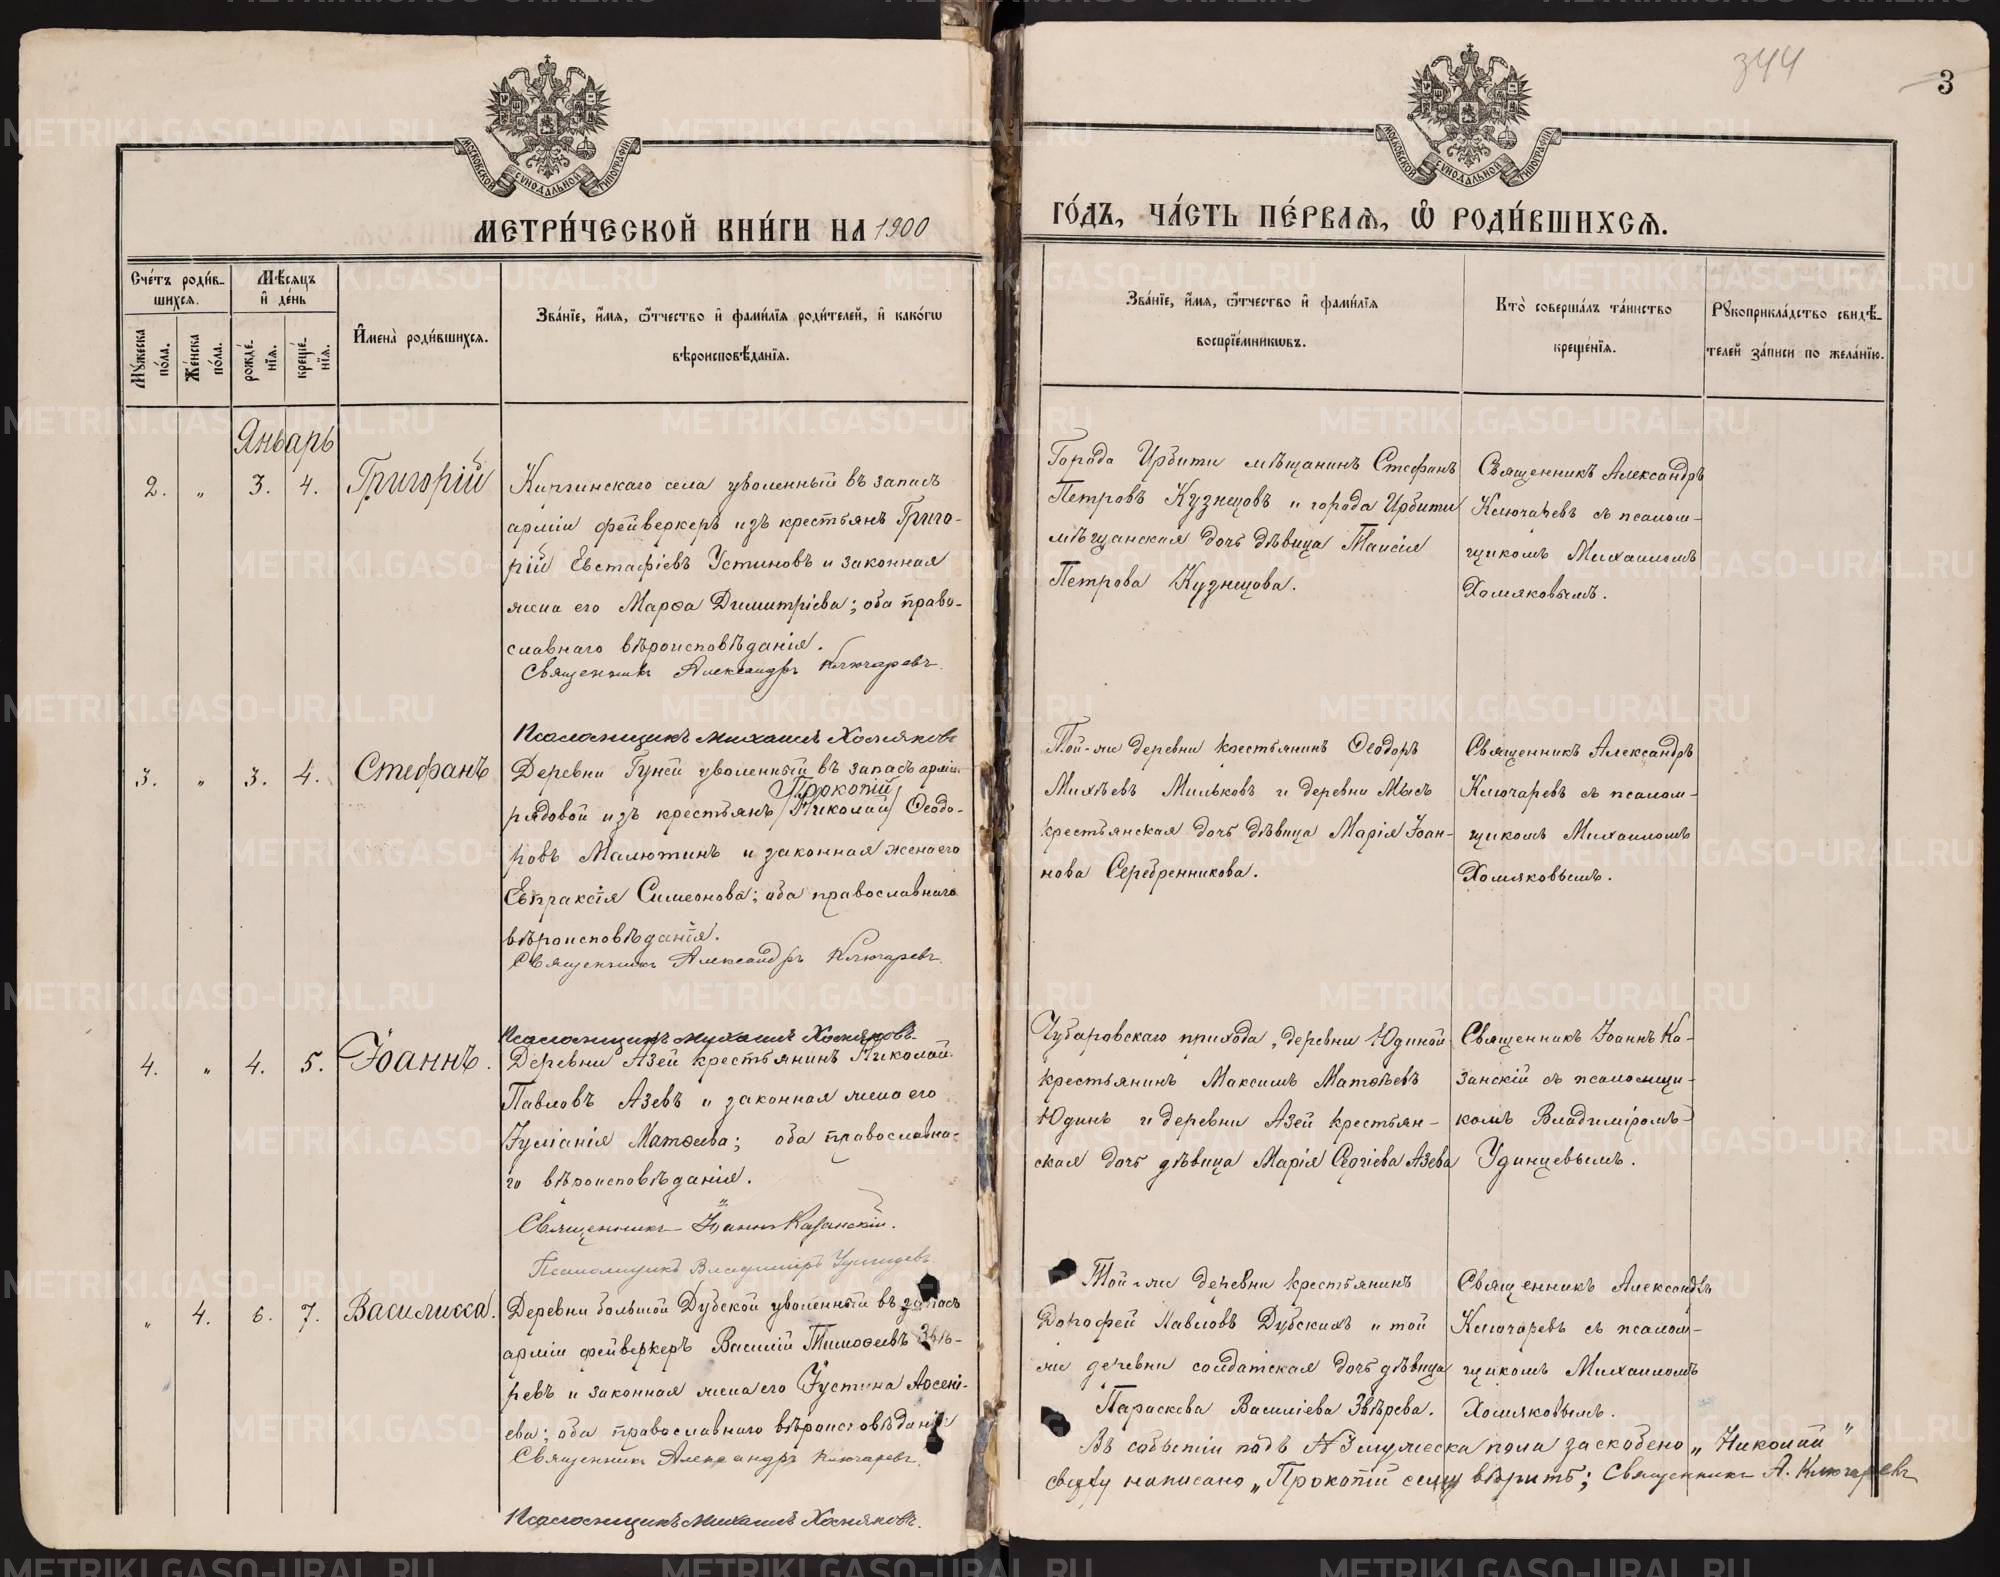 344
3
МОСКОВСКОЙ СѴНОДАЛЬНОЙ ТИПОГРАФІИ
МОСКОВСКОЙ СѴНОДАЛЬНОЙ ТИПОГРАФІИ
МЕТРИ́ЧЕСКОЙ КНИ́ГИ НА 1900
ГО́ДЪ, ЧА́СТЬ ПЕ́РВАѦ, Ѡ҆ РОДИ́ВШИХСѦ.
Сче́тъ роди́в-
шихсѧ.
Мꙋ́жеска по́ла.
Же́нска по́ла.
Мѣ́сѧцъ
и҆ де́нь
рожде́-
нїѧ.
креще́-
нїѧ.
И҆мена̀ роди́вшихсѧ.
Зва́нїе, и҆́мѧ, ѻ҆́тчество и҆ фами́лїѧ роди́телей, и҆ како́гѡ
вѣроисповѣ́данїѧ.
Зва́нїе, и҆́мѧ, ѻ҆́тчество и҆ фами́лїѧ
воспрїе́мникѡвъ.
Кто̀ соверша́лъ та́инство
креще́нїѧ.
Рꙋкоприкла́дство свидѣ́-
телей за́писи по жела́нїю.
Январь
2. " 3. 4. Григорій
Киргинскаго села уволенный въ запасъ
арміи фейверкеръ изъ крестьянъ Григо-
рій Евстафіевъ Устиновъ и законная
жена его Марѳа Димитріева; оба право-
славнаго вѣроисповѣданія.
Священникъ Александръ Ключаревъ
Псаломщикъ Михаилъ Хомяковъ
Города Ирбити мѣщанинъ Стефанъ
Петровъ Кузнецовъ и города Ирбити
мѣщанская дочь дѣвица Таисія
Петрова Кузнецова.
Священникъ Александръ
Ключаревъ съ псалом-
щикомъ Михаиломъ
Хомяковымъ.
3. " 3. 4. Стефанъ
Деревни Гуней уволенный въ запасъ арміи
Прокопій
рядовой изъ крестьянъ /Николай/ Ѳеодо-
ровъ Малютинъ и законная жена его
Евпраксія Симеонова; оба православнаго
вѣроисповѣданія.
Священникъ Александръ Ключаревъ
Псаломщикъ Михаилъ Хомяковъ.
Той-же деревни крестьянинъ Ѳеодоръ
Михѣевъ Мильковъ и деревни Мысъ
крестьянская дочь дѣвица Марія Іоан-
нова Серебренникова.
Священникъ Александръ
Ключаревъ съ псалом-
щикомъ Михаиломъ
Хомяковымъ.
4. " 4. 5. Іоаннъ.
Деревни Азей крестьянинъ Николай
Павловъ Азевъ и законная жена его
Іуліанія Матѳеева; оба православна-
го вѣроисповѣданія.
Священникъ Іоаннъ Казанскій.
Псаломщикъ Владиміръ Удинцевъ
Чубаровскаго прихода, деревни Юдиной
крестьянинъ Максимъ Матѳѣевъ
Юдинъ и деревни Азей крестьян-
ская дочь дѣвица Марія Сергіева Азева
Священникъ Іоаннъ Ка-
занскій съ псаломщи-
комъ Владиміромъ
Удинцевымъ.
" 4. 6. 7. Василисса.
Деревни большой Дубской уволенный въ запасъ
арміи фейверкеръ Василій Тимоѳеевъ Звѣ-
ревъ и законная жена его Іустина Арсені-
ева; оба православнаго вѣроисповѣданія.
Священникъ Александръ Ключаревъ
Псаломщикъ Михаилъ Хомяковъ.
Той-же деревни крестьянинъ
Дорофей Павловъ Дубскихъ и той
же деревни солдатская дочь дѣвица
Параскева Василіева Звѣрева.
Священникъ Александръ
Ключаревъ съ псалом-
щикомъ Михаиломъ
Хомяковымъ.
Въ событіи подъ №3 мужеска пола заскоблено „Николай"
сверху написано „Прокопій сему вѣрить; Священникъ А. Ключаревъ
METRIKI.GASO-URAL.RU